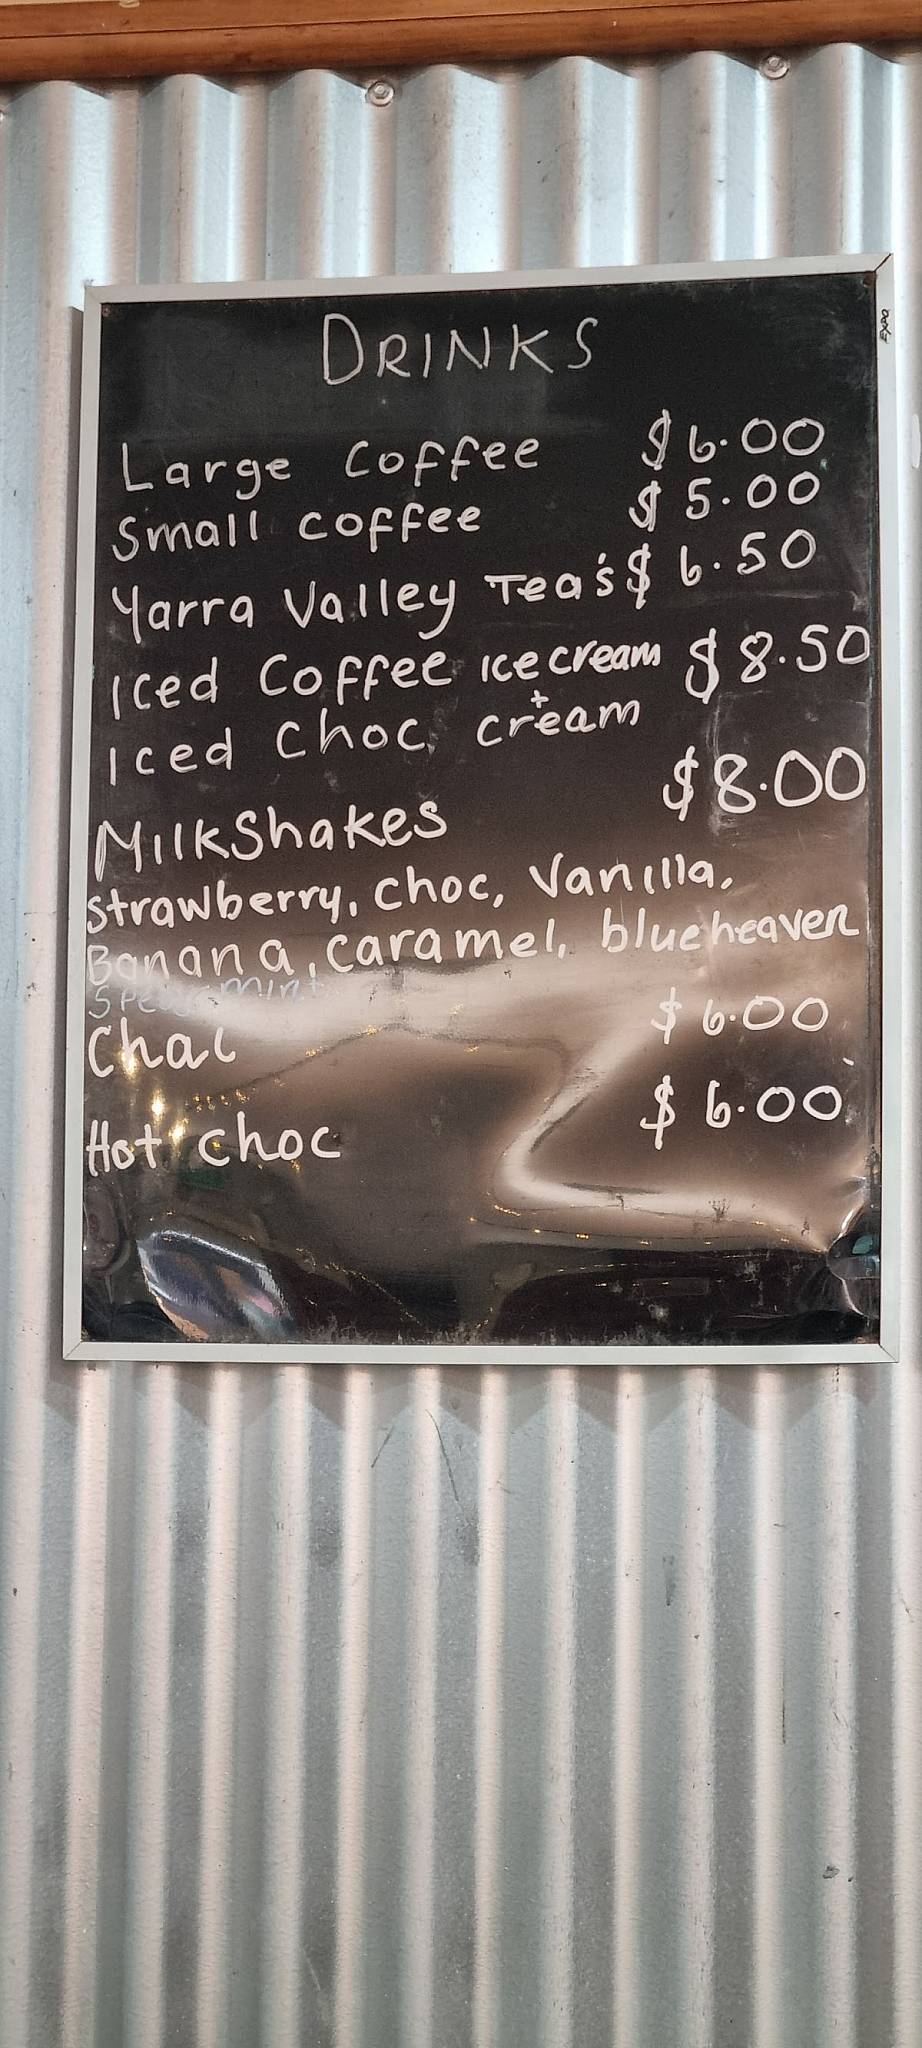 DRINKS
Large Coffee $6.00
Small coffee $5.00
Yarra Valley Tea's $6.50
Iced Coffee Icecream $8.50
+
Iced Choc cream
MilkShakes $8.00
strawberry, choc, Vanilla,
Banana, caramel, blueheaven
Spearmint
Chai $6.00
Hot choc $6.00
EXPO